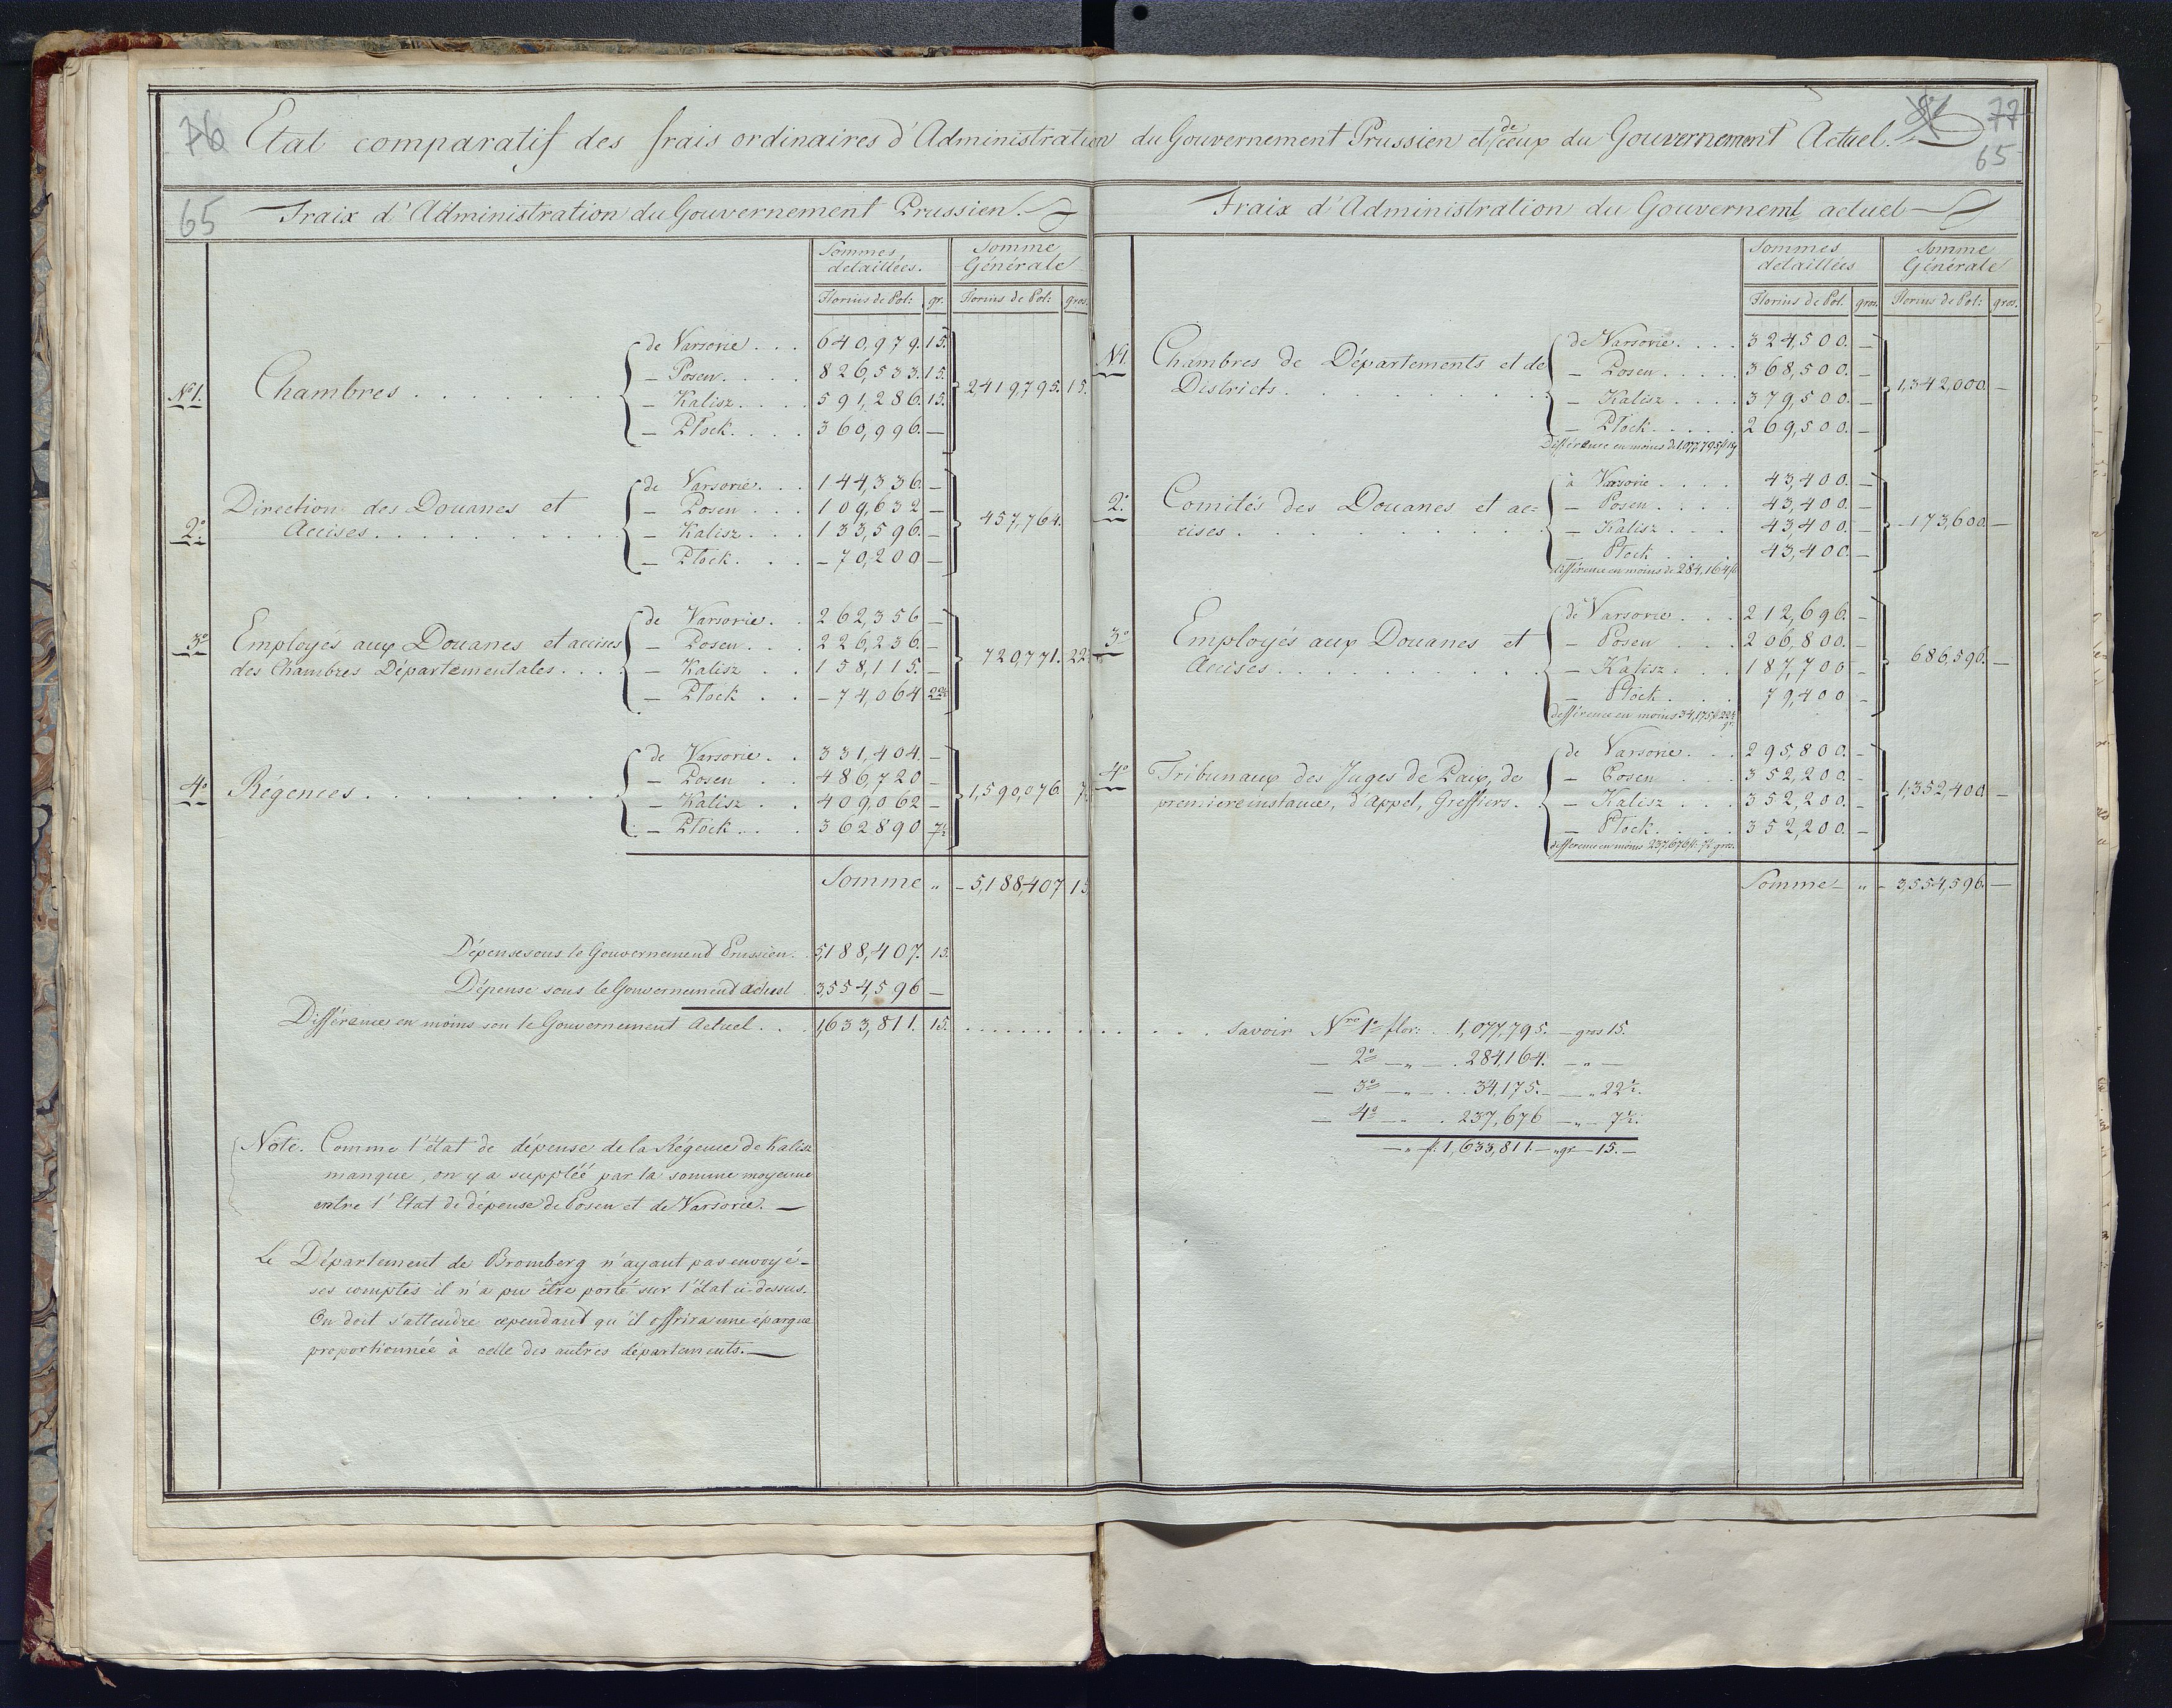 76
Etat comparatif des frais ordinaires d'Administration du Gouvernement Prussien et de ceux du Gouvernement Actuel.
77
65
65
Fraix d'Administration du Gouvernement Prussien.
Sommes détaillées. Somme Générale
Florins de Pol: gr. Florins de Pol: gros.
Nº 1. Chambres . . . . . . .
de Varsovie . . . 640,979. 15.
— Posen . . . . 826,533. 15.
— Kalisz . . . . 591,286. 15.
— Płock . . . . 360,996. —
2419,795. 15.
2º. Direction des Douanes et
Accises . . . . . . . . . .
de Varsovie . . . 144,336. —
— Posen . . . 109,632 —
— Kalisz . . . 133,596. —
— Płock . . . – 70,200 —
457,764.
3º Employés aux Douanes et accises
des Chambres Départementales . . . .
de Varsovie . . 262,356 —
— Posen . . . 226,236. —
— Kalisz . . 158,115. —
— Płock . . – 74,064 22½
720,771. 22
4º Régences . . . . . . . .
de Varsovie . . 331,404. —
— Posen . . 486,720 —
— Kalisz . . 409,062 —
— Płock . . . 362890 7½
1,590,076 7.
Somme „ – 5,188,407 15
Dépense sous le Gouvernement Prussien. 5,188,407. 15.
Dépense sous le Gouvernement Actuel 3,554,596 —
Différence en moins sou le Gouvernement Actuel . . . 1,633,811. 15.
Note. Comme l'état de dépense de la Régence de Kalisz
manque, on y a suppléé par la somme moyenne
entre l'Etat de dépense de Posen et de Varsovie. —
Le Département de Bromberg n'ayant pas envoyé
ses comptes il n'a pu être porté sur l'état ci-dessus.
On doit s'attendre cependant qu'il offrira une épargne
proportionnée à celle des autres départements. —
Fraix d'Administration du Gouvernemt actuel
Sommes détaillées Somme Générale
Florins de Pol. gros. Florins de Pol: gros.
Nº 1. Chambres de Départements et de
Districts . . . . . . . . . .
de Varsovie . . . . 324,500. —
— Posen . . . . . 368,500. —
— Kalisz . . . . 379,500. —
— Płock . . . . . 269,500. —
1,342,000. —
Différence en moins de 1,077,795 fl 15 g
2º. Comités des Douanes et ac=
cises . . . . . . . . . . .
à Varsovie . . . . 43,400. —
— Posen . . . . 43,400. —
— Kalisz . . . . 43,400. —
— Płock . . . . 43,400 —
– 173,600 —
différence en moins de 284,164 fl
3º Employés aux Douanes et
Accises . . . . . . . . . .
de Varsovie . . . 212,696. —
— Posen . . . 206,800. —
— Kalisz . . . 187,700 —
— Płock . . . 79,400 —
686,596. —
différence en moins 34,175 fl 22½ gr.
4º Tribunaux des Juges de Paix, de
premiere instance, d'Appel, Greffiers. .
de Varsovie . . . 295,800. —
— Posen . . . 352,200. —
— Kalisz . . . 352,200. —
— Płock . . . . 352,200. —
1,352,400 —
différence en moins 237,676 fl: 7½ gros.
Somme – „ – 3,554,596. —
. . . . . . . . . . . Savoir Nro 1º flor: . . 1,077,795. — gros 15.
— 2º — „ — . 284,164. — „ —
— 3º — „ — . . 34,175. — — „ 22½.
— 4º — „ — . 237,676 — „ — 7½.
— „ fl. 1,633,811. — „ gr — 15. —